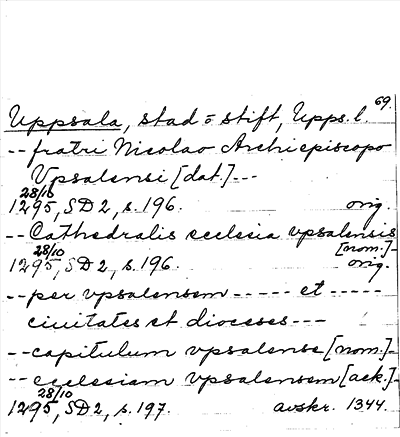 69.
Uppsala, stad o stift, Upps. l.
-- fratri Nicolao Archiepiscopo
Vpsalensi [dat.] ---
28/10
1295, SD 2, s. 196. orig.
-- Cathedralis ecclesia vpsalensis
[nom.] -
28/10
1295, SD 2, s. 196. orig.
-- per vpsalensem ----- et -----
ciuitates et dioceses ---
-- capitulum vpsalense [nom.] -
-- ecclesiam vpsalensem [ack.] -
28/10
1295, SD 2, s. 197. avskr. 1344.